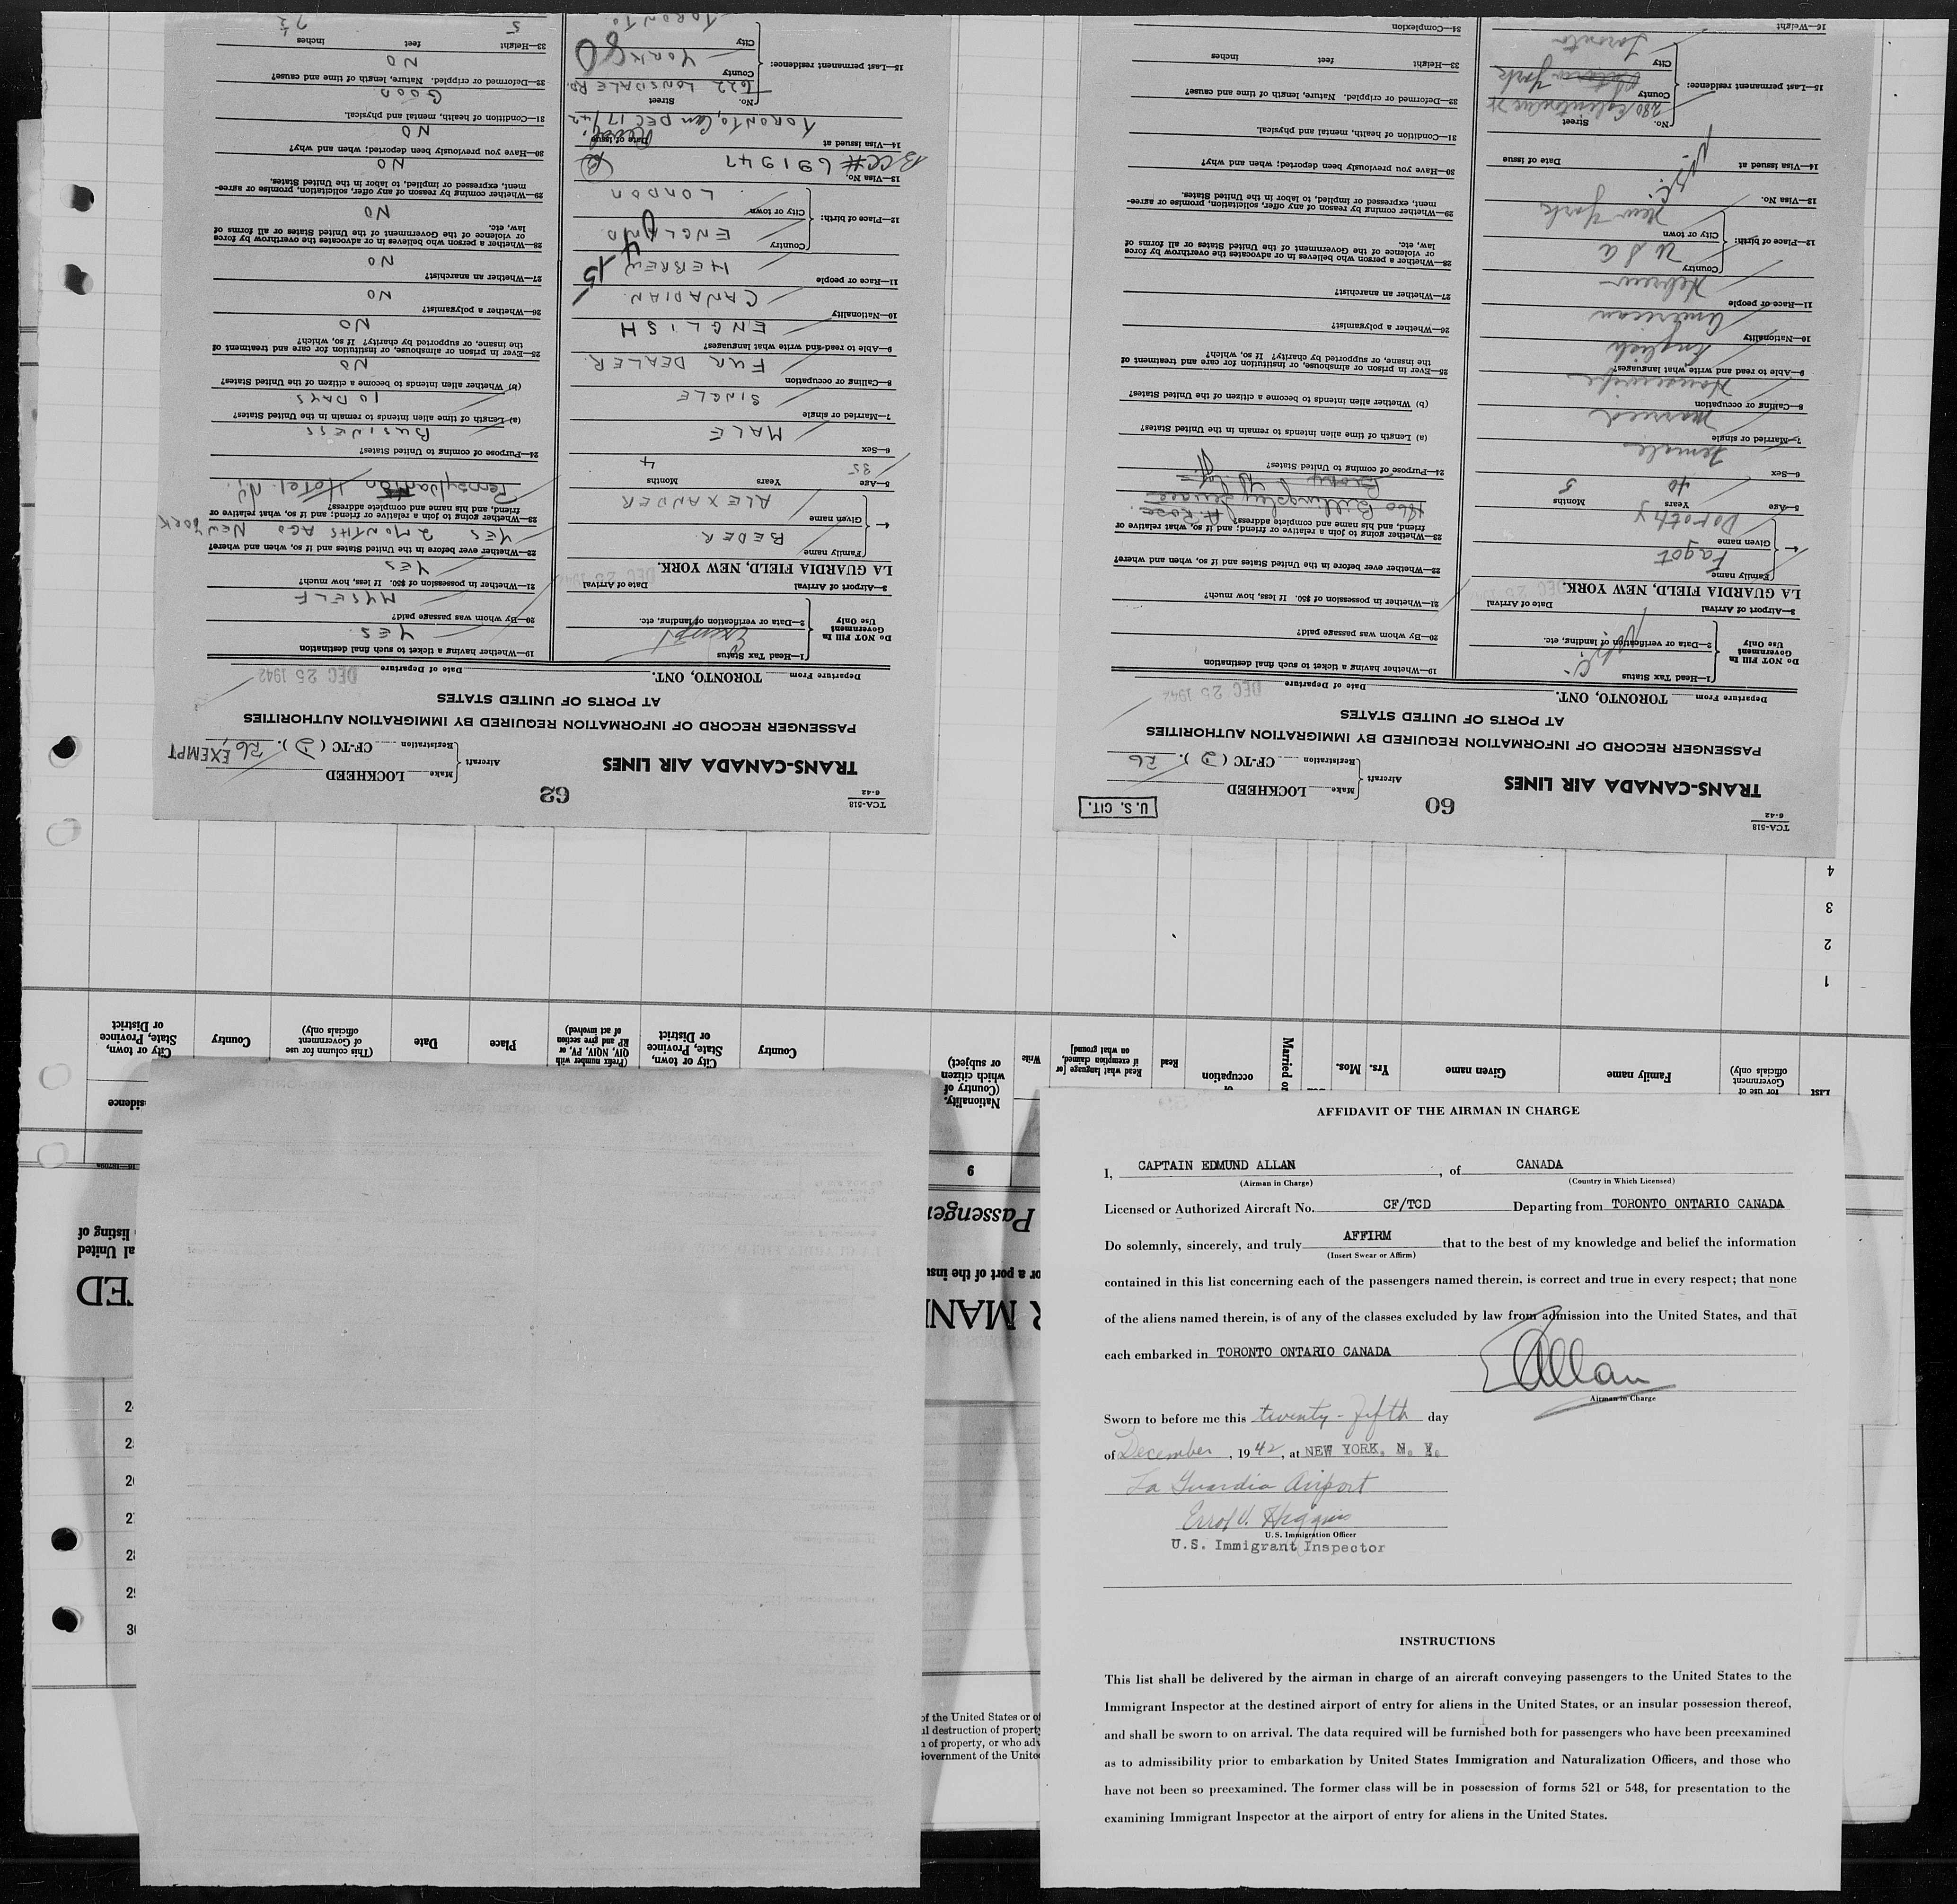 TCA-518
6-42
62
TRANS-CANADA AIR LINES
Aircraft
Make LOCKHEED
Registration CF-TC ( D ). 26 EXEMPT
PASSENGER RECORD OF INFORMATION REQUIRED BY IMMIGRATION AUTHORITIES
AT PORTS OF UNITED STATES
Departure From TORONTO, ONT. Date of Departure DEC 25 1942
DO NOT FILL IN
Government
Use Only
1—Head Tax Status Exempt
2—Data or verification of landing, etc.
3—Airport of Arrival Date of Arrival
LA GUARDIA FIELD, NEW YORK. DEC 25 1942
Family name BEDER
Given name ALEXANDER
5—Age 35 Years 4 Months
6—Sex MALE
7—Married or single SINGLE
8—Calling or occupation FUR DEALER
9—Able to read and write what languages? ENGLISH
10—Nationality CANADIAN
11—Race or people HEBREW
12—Place of birth: Country ENGLAND
City or town LONDON
13—Visa No. BCC# 691947
14—Visa issued at Date of Issue
TORONTO, Can DEC 17/42
15—Last permanent residence: No. Street 622 LONSDALE RD.
County YORK
City TORONTO
19—Whether having a ticket to such final destination
YES
20—By whom was passage paid?
MYSELF
21—Whether in possession of $50. If less, how much?
YES
22—Whether ever before in the United States and if so, when and where?
YES 2 MONTHS AGO NEW YORK
23—Whether going to join a relative or friend; and if so, what relative or
friend, and his name and complete address?
Pennsylvanian Hotel. N.Y.
24—Purpose of coming to United States?
BUSINESS
(a) Length of time alien intends to remain in the United States?
10 DAYS
(b) Whether alien intends to become a citizen of the United States?
NO
25—Ever in prison or almshouse, or institution for care and treatment of
the insane, or supported by charity? If so, which?
NO
26—Whether a polygamist?
NO
27—Whether an anarchist?
NO
28—Whether a person who believes in or advocates the overthrow by force
or violence of the Government of the United States or all forms of
law, etc.
NO
29—Whether coming by reason of any offer, solicitation, promise or agree-
ment, expressed or implied, to labor in the United States.
NO
30—Have you previously been deported; when and why?
NO
31—Condition of health, mental and physical.
GOOD
32—Deformed or crippled. Nature, length of time and cause?
NO
33—Height 5 feet 7½ inches
TCA-518
6-42
60
U. S. CIT.
TRANS-CANADA AIR LINES
Aircraft
Make LOCKHEED
Registration CF-TC ( D ). 26
PASSENGER RECORD OF INFORMATION REQUIRED BY IMMIGRATION AUTHORITIES
AT PORTS OF UNITED STATES
Departure From TORONTO, ONT. Date of Departure DEC 25 1942
DO NOT FILL IN
Government
Use Only
1—Head Tax Status
2—Data or verification of landing, etc.
3—Airport of Arrival Date of Arrival
LA GUARDIA FIELD, NEW YORK. DEC 25 1942
Family name Fagot
Given name Dorothy
5—Age 40 Years 5 Months
6—Sex Female
7—Married or single Married
8—Calling or occupation Housewife
9—Able to read and write what languages? English
10—Nationality American
11—Race or people Hebrew
12—Place of birth: Country U S A
City or town New York
13—Visa No.
14—Visa issued at Date of Issue
15—Last permanent residence: No. Street
County York
City Toronto
16—Weight
19—Whether having a ticket to such final destination
20—By whom was passage paid?
21—Whether in possession of $50. If less, how much?
22—Whether ever before in the United States and if so, when and where?
23—Whether going to join a relative or friend; and if so, what relative or
friend, and his name and complete address? A. Rose.
1800 Billingsley Terrace
Bronx N.Y. City.
24—Purpose of coming to United States?
(a) Length of time alien intends to remain in the United States?
(b) Whether alien intends to become a citizen of the United States?
25—Ever in prison or almshouse, or institution for care and treatment of
the insane, or supported by charity? If so, which?
26—Whether a polygamist?
27—Whether an anarchist?
28—Whether a person who believes in or advocates the overthrow by force
or violence of the Government of the United States or all forms of
law, etc.
29—Whether coming by reason of any offer, solicitation, promise or agree-
ment, expressed or implied, to labor in the United States.
30—Have you previously been deported; when and why?
31—Condition of health, mental and physical.
32—Deformed or crippled. Nature, length of time and cause?
33—Height feet inches
34—Complexion
4
3
2
1
Family name
Given name
Yrs. Mos.
Married or
occupation
Read
Read what language [or
if exemption claimed,
on what ground]
Write
Nationality.
(Country of
which citizen
or subject)
Country
City or town,
State, Province
or District
(Prefix number with
QIV, NQIV, PV, or
RP and give section
of act involved)
Place
Date
(This column for use
of Government
officials only)
Country
City or town,
State, Province
or District
9
Passenger
or a port of the insu
R MANI
listing of
al United
ED
of the United States or of
ul destruction of property
n of property, or who adv
Government of the Unite
AFFIDAVIT OF THE AIRMAN IN CHARGE
I, CAPTAIN EDMUND ALLAN, of CANADA
(Airman in Charge) (Country in Which Licensed)
Licensed or Authorized Aircraft No. CF/TCD Departing from TORONTO ONTARIO CANADA
Do solemnly, sincerely, and truly AFFIRM that to the best of my knowledge and belief the information
(Insert Swear or Affirm)
contained in this list concerning each of the passengers named therein, is correct and true in every respect; that none
of the aliens named therein, is of any of the classes excluded by law from admission into the United States, and that
each embarked in TORONTO ONTARIO CANADA
E Allan
Airman in Charge
Sworn to before me this twenty-fifth day
of December, 1942, at NEW YORK, N. Y.
La Guardia Airport
Errol V. Higgins
U.S. Immigration Officer
U.S. Immigrant Inspector
INSTRUCTIONS
This list shall be delivered by the airman in charge of an aircraft conveying passengers to the United States to the
Immigrant Inspector at the destined airport of entry for aliens in the United States, or an insular possession thereof,
and shall be sworn to on arrival. The data required will be furnished both for passengers who have been preexamined
as to admissibility prior to embarkation by United States Immigration and Naturalization Officers, and those who
have not been so preexamined. The former class will be in possession of forms 521 or 548, for presentation to the
examining Immigrant Inspector at the airport of entry for aliens in the United States.